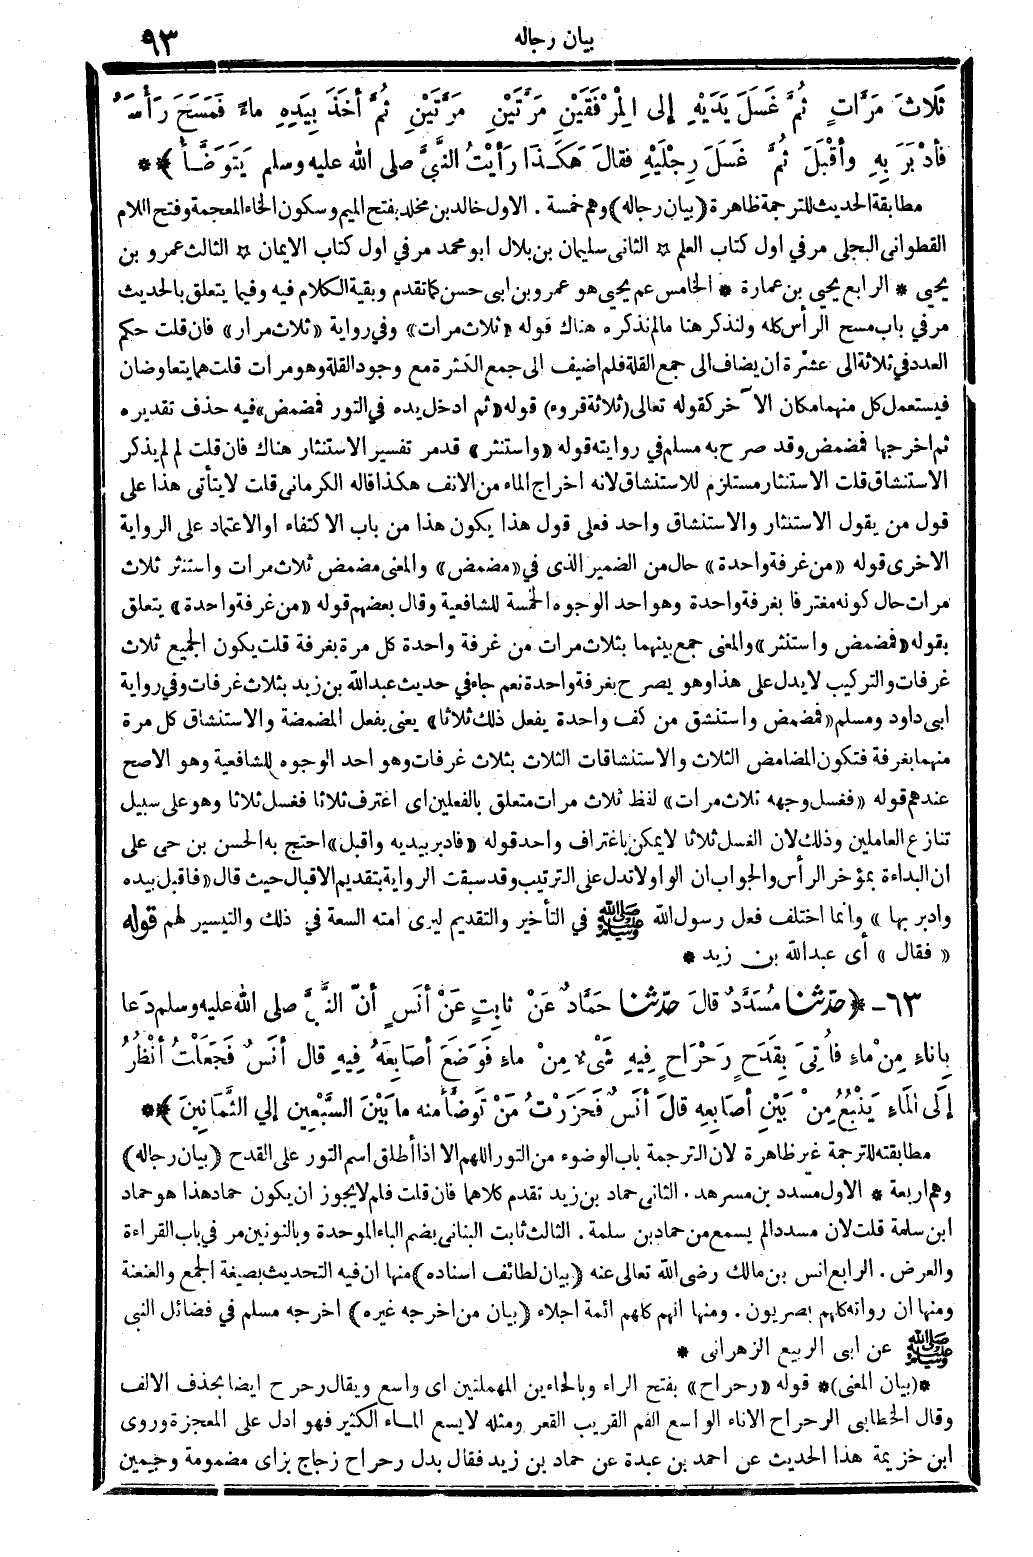 بيان رجاله
٩٣
ثَلاثَ مَرَّاتٍ ثُمَّ غَسَلَ يَدَيْهِ إلى المِرْفَقَيْنِ مَرَّتَيْنِ مَرَّتَيْنِ ثُمَّ أخَذَ بِيَدِهِ ماءً فَمَسَحَ رَأْسَهُ
فأدْبَرَ بِهِ وأقْبَلَ ثُمَّ غَسَلَ رِجْلَيْهِ فقالَ هَكَذَا رَأيْتُ النَّبِيَّ صلى الله عليه وسلم يَتَوَضَّأُ ﴾ **
مطابقة الحديث للترجمة ظاهرة (بيان رجاله) وهم خمسة . الاول خالد بن مخلد بفتح الميم وسكون الخاء المعجمة وفتح اللام
القطوانى البجلى مر في اول كتاب العلم * الثانى سليمان بن بلال ابو محمد مر في اول كتاب الايمان * الثالث عمرو بن
يحيي * الرابع يحيي بن عمارة * الخامس عم يحيي هو عمرو بن ابى حسن كما تقدم وبقية الكلام فيه وفيما يتعلق بالحديث
مر في باب مسح الرأس كله ولنذكر هنا مالم نذكره هناك قوله «ثلاث مرات» وفي رواية «ثلاث مرار» فان قلت حكم
العدد في ثلاثة الى عشرة ان يضاف الى جمع القلة فلم اضيف الى جمع الكثرة مع وجود القلة وهو مرات قلت هما يتعاوضان
فيستعمل كل منهما مكان الآخر كقوله تعالى (ثلاثة قروء) قوله «ثم ادخل يده في التور فمضمض» فيه حذف تقديره
ثم اخرجها فمضمض وقد صرح به مسلم في روايته قوله «واستنثر» قدمر تفسير الاستنثار هناك فان قلت لم لم يذكر
الاستنشاق قلت الاستنثار مستلزم للاستنشاق لانه اخراج الماء من الانف هكذا قاله الكرمانى قلت لا يتأتى هذا على
قول من يقول الاستنثار والاستنشاق واحد فعلى قول هذا يكون هذا من باب الاكتفاء او الاعتماد على الرواية
الاخرى قوله «من غرفة واحدة» حال من الضمير الذى في «مضمض» والمعنى مضمض ثلاث مرات واستنثر ثلاث
مرات حال كونه مغترفا بغرفة واحدة وهو احد الوجوه الخمسة للشافعية وقال بعضهم قوله «من غرفة واحدة» يتعلق
بقوله «فمضمض واستنثر» والمعنى جمع بينهما بثلاث مرات من غرفة واحدة كل مرة بغرفة قلت يكون الجميع ثلاث
غرفات والتركيب لا يدل على هذا وهو يصرح بغرفة واحدة نعم جاء في حديث عبدالله بن زيد بثلاث غرفات وفي رواية
ابى داود ومسلم «فمضمض واستنشق من كف واحدة يفعل ذلك ثلاثا» يعنى يفعل المضمضة والاستنشاق كل مرة
منهما بغرفة فتكون المضامض الثلاث والاستنشاقات الثلاث بثلاث غرفات وهو احد الوجوه للشافعية وهو الاصح
عندهم قوله «فغسل وجهه ثلاث مرات» لفظ ثلاث مرات متعلق بالفعلين اى اغترف ثلاثا فغسل ثلاثا وهو على سبيل
تنازع العاملين وذلك لان الغسل ثلاثا لا يمكن باغتراف واحد قوله «فادبر بيديه واقبل» احتج به الحسن بن حى على
ان البداءة بمؤخر الرأس والجواب ان الواو لا تدل على الترتيب وقد سبقت الرواية بتقديم الاقبال حيث قال «فاقبل بيده
وادبر بها» وانما اختلف فعل رسول الله ﷺ في التأخير والتقديم ليرى امته السعة في ذلك والتيسير لهم قوله
«فقال» أى عبدالله بن زيد *
٦٣ - ﴿ حدّثنا مُسَدَّدٌ قالَ حدّثنا حَمَّادٌ عَنْ ثابِتٍ عَنْ أنَسٍ أنّ النَّبِيَّ صلى الله عليه وسلم دَعا
بِاناءٍ مِنْ ماءٍ فأُتِيَ بِقَدَحٍ رَحْرَاحٍ فِيهِ شَيْءٌ مِنْ ماءٍ فَوَضَعَ أصَابِعَهُ فِيهِ قال أنَسٌ فَجَعَلْتُ أنْظُرُ
إلَى المَاءِ يَنْبُعُ مِنْ بَيْنِ أصابِعِهِ قالَ أنَسٌ فَحَزَرْتُ مَنْ تَوَضَّأَ منه ما بَيْنَ السَّبْعِينِ إلي الثَّمَانِينَ ﴾ **
مطابقته للترجمة غير ظاهرة لان الترجمة باب الوضوء من التور اللهم الا اذا أطلق اسم التور على القدح (بيان رجاله)
وهم اربعة * الاول مسدد بن مسرهد . الثانى حماد بن زيد تقدم كلاهما فان قلت فلم لا يجوز ان يكون حماد هذا هو حماد
ابن سلمة قلت لان مسددا لم يسمع من حماد بن سلمة . الثالث ثابت البنانى بضم الباء الموحدة وبالنونين مر في باب القراءة
والعرض . الرابع انس بن مالك رضى الله تعالى عنه (بيان لطائف اسناده) منها ان فيه التحديث بصيغة الجمع والعنعنة
ومنها ان رواته كلهم بصريون . ومنها انهم كلهم ائمة اجلاء (بيان من اخرجه غيره) اخرجه مسلم في فضائل النبى
ﷺ عن ابى الربيع الزهرانى *
*(بيان المعنى)* قوله «رحراح» بفتح الراء وبالحاءين المهملتين اى واسع ويقال رحرح ايضا بحذف الالف
وقال الخطابى الرحراح الاناء الواسع الفم القريب القعر ومثله لا يسع الماء الكثير فهو ادل على المعجزة وروى
ابن خزيمة هذا الحديث عن احمد بن عبدة عن حماد بن زيد فقال بدل رحراح زجاج بزاى مضمومة وجيمين